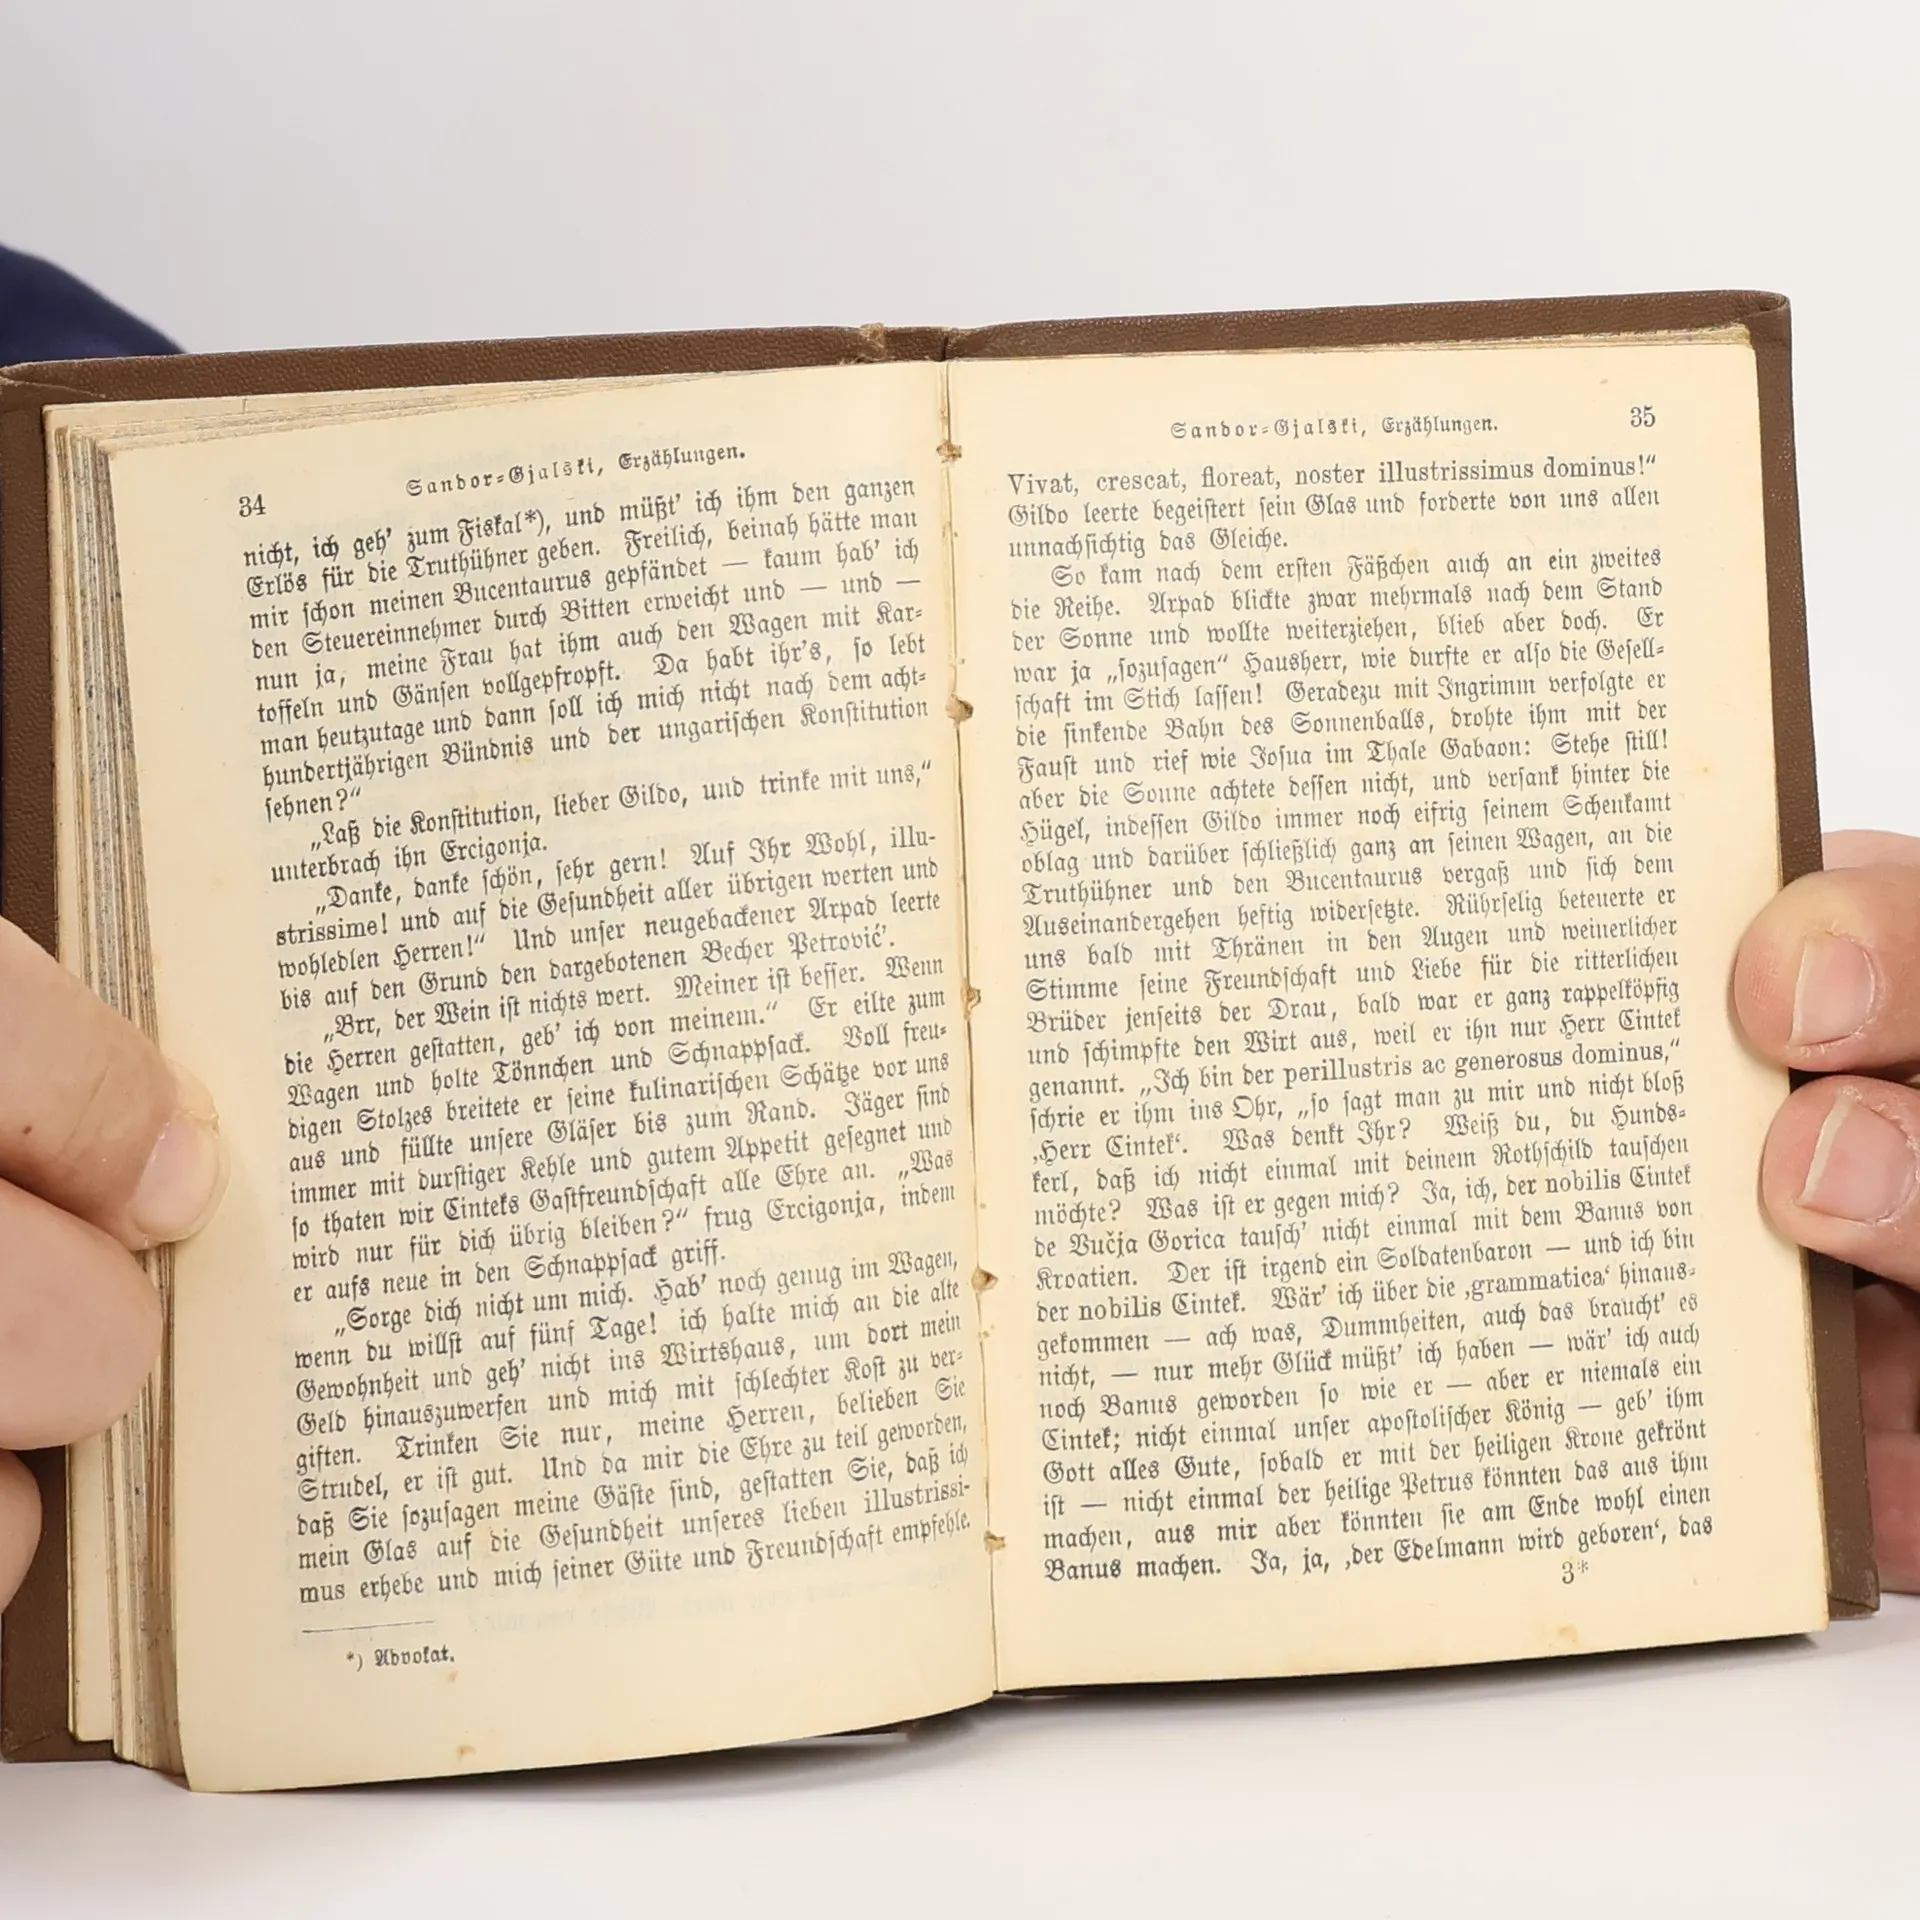 34
Sandor-Gjalski, Erzählungen.
nicht, ich geh' zum Fiskal*), und müßt' ich ihm den ganzen
Erlös für die Truthühner geben. Freilich, beinah hätte man
mir schon meinen Bucentaurus gepfändet — kaum hab' ich
den Steuereinnehmer durch Bitten erweicht und — und —
nun ja, meine Frau hat ihm auch den Wagen mit Kar-
toffeln und Gänsen vollgepfropft. Da habt ihr's, so lebt
man heutzutage und dann soll ich mich nicht nach dem acht-
hundertjährigen Bündnis und der ungarischen Konstitution
sehnen?“
„Laß die Konstitution, lieber Gildo, und trinke mit uns,“
unterbrach ihn Ercigonja.
„Danke, danke schön, sehr gern! Auf Ihr Wohl, illu-
strissime! und auf die Gesundheit aller übrigen werten und
wohledlen Herren!“ Und unser neugebackener Arpad leerte
bis auf den Grund den dargebotenen Becher Petrović'.
„Brr, der Wein ist nichts wert. Meiner ist besser. Wenn
die Herren gestatten, geb' ich von meinem.“ Er eilte zum
Wagen und holte Tönnchen und Schnappsack. Voll freu-
digen Stolzes breitete er seine kulinarischen Schätze vor uns
aus und füllte unsere Gläser bis zum Rand. Jäger sind
immer mit durstiger Kehle und gutem Appetit gesegnet und
so thaten wir Cinteks Gastfreundschaft alle Ehre an. „Was
wird nur für dich übrig bleiben?“ frug Ercigonja, indem
er aufs neue in den Schnappsack griff.
„Sorge dich nicht um mich. Hab' noch genug im Wagen,
wenn du willst auf fünf Tage! ich halte mich an die alte
Gewohnheit und geh' nicht ins Wirtshaus, um dort mein
Geld hinauszuwerfen und mich mit schlechter Kost zu ver-
giften. Trinken Sie nur, meine Herren, belieben Sie
Strudel, er ist gut. Und da mir die Ehre zu teil geworden,
daß Sie sozusagen meine Gäste sind, gestatten Sie, daß ich
mein Glas auf die Gesundheit unseres lieben illustrissi-
mus erhebe und mich seiner Güte und Freundschaft empfehle.
*) Advokat.
Sandor-Gjalski, Erzählungen.
35
Vivat, crescat, floreat, noster illustrissimus dominus!“
Gildo leerte begeistert sein Glas und forderte von uns allen
unnachsichtig das Gleiche.
So kam nach dem ersten Fäßchen auch an ein zweites
die Reihe. Arpad blickte zwar mehrmals nach dem Stand
der Sonne und wollte weiterziehen, blieb aber doch. Er
war ja „sozusagen“ Hausherr, wie durfte er also die Gesell-
schaft im Stich lassen! Geradezu mit Ingrimm verfolgte er
die sinkende Bahn des Sonnenballs, drohte ihm mit der
Faust und rief wie Josua im Thale Gabaon: Stehe still!
aber die Sonne achtete dessen nicht, und versank hinter die
Hügel, indessen Gildo immer noch eifrig seinem Schenkamt
oblag und darüber schließlich ganz an seinen Wagen, an die
Truthühner und den Bucentaurus vergaß und sich dem
Auseinandergehen heftig widersetzte. Rührselig beteuerte er
uns bald mit Thränen in den Augen und weinerlicher
Stimme seine Freundschaft und Liebe für die ritterlichen
Brüder jenseits der Drau, bald war er ganz rappelköpfig
und schimpfte den Wirt aus, weil er ihn nur Herr Cintek
genannt. „Ich bin der perillustris ac generosus dominus,“
schrie er ihm ins Ohr, „so sagt man zu mir und nicht bloß
‚Herr Cintek‘. Was denkt Ihr? Weiß du, du Hunds-
kerl, daß ich nicht einmal mit deinem Rothschild tauschen
möchte? Was ist er gegen mich? Ja, ich, der nobilis Cintek
de Vučja Gorica tausch' nicht einmal mit dem Banus von
Kroatien. Der ist irgend ein Soldatenbaron — und ich bin
der nobilis Cintek. Wär' ich über die ‚grammatica‘ hinaus-
gekommen — ach was, Dummheiten, auch das braucht' es
nicht, — nur mehr Glück müßt' ich haben — wär' ich auch
noch Banus geworden so wie er — aber er niemals ein
Cintek; nicht einmal unser apostolischer König — geb' ihm
Gott alles Gute, sobald er mit der heiligen Krone gekrönt
ist — nicht einmal der heilige Petrus könnten das aus ihm
machen, aus mir aber könnten sie am Ende wohl einen
Banus machen. Ja, ja, ‚der Edelmann wird geboren‘, das
3*